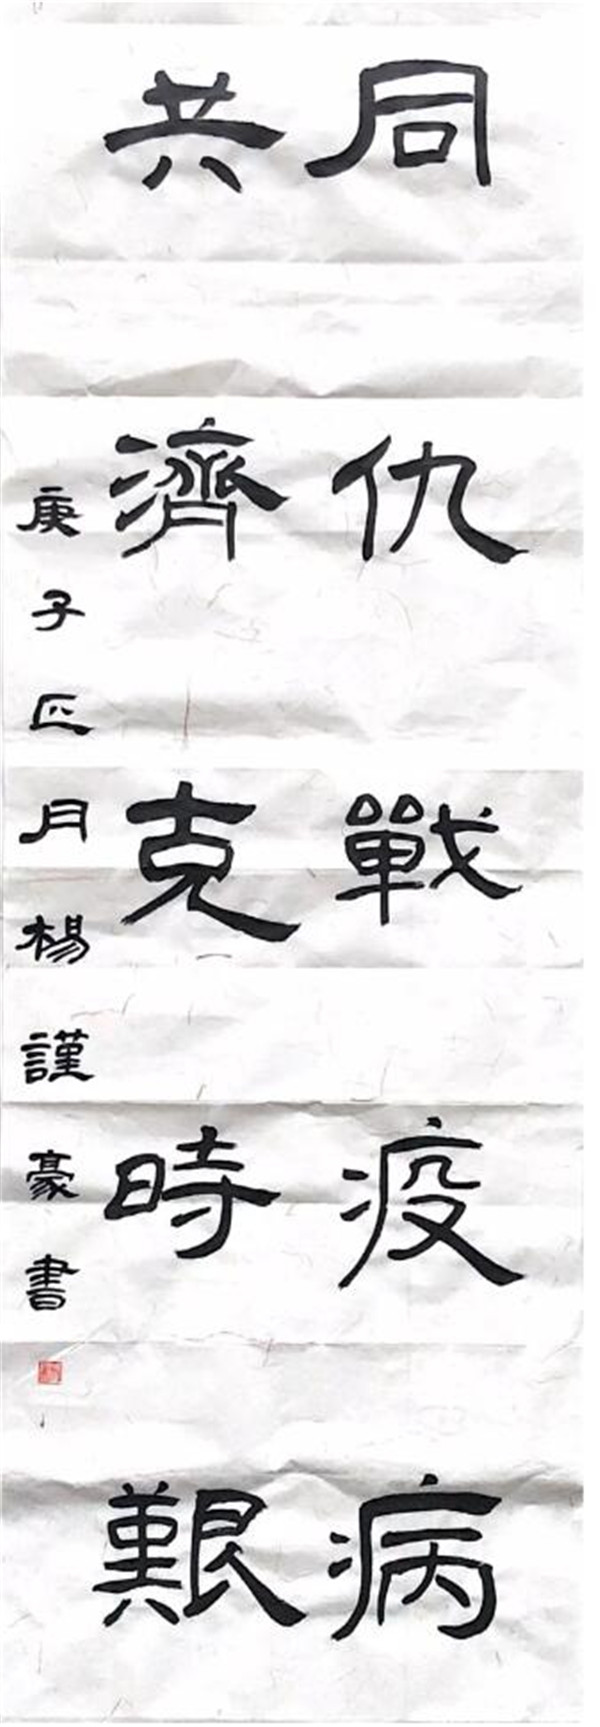 同仇戰疫病
共濟克時艱
庚子正月楊謹豪書